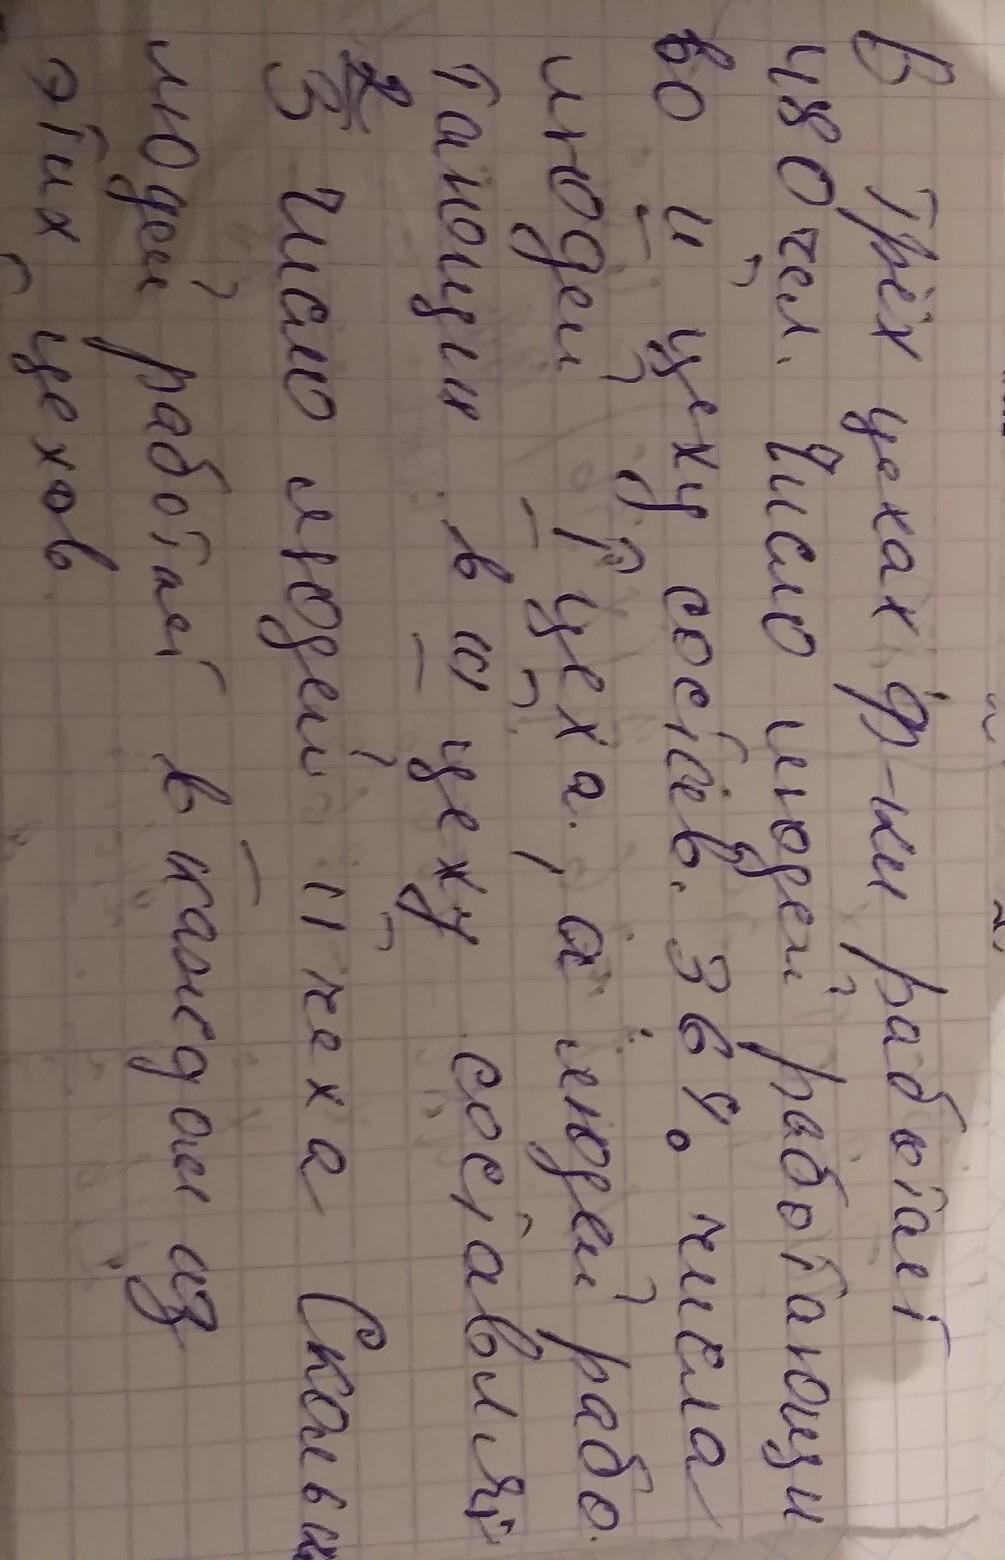 В трёх цехах ф-ки работает
480 чел. Число людей работающи
во II цеху состав. 36% числа
людей I цеха, а людей рабо
тающих в III цеху составля
2/3 число людей II цеха Скольк
людей работает в каждом из
этих цехов